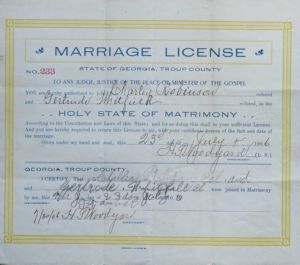 MARRIAGE LICENSE
STATE OF GEORGIA, TROUP COUNTY
NO. 233
TO ANY JUDGE, JUSTICE OF THE PEACE OR MINISTER OF THE GOSPEL
You are hereby authorized to join Charlie Robinson colored
and Gertrude colored, in the
HOLY STATE OF MATRIMONY
According to the Constitution and Laws of this State; and for so doing this shall be your sufficient License. And
you are hereby required to return this License to me, with your certificate hereon of the fact and date of
the marriage.
Given under my hand and seal, this 23 day of July 1906
H. T. Woodyard (L. S.)
GEORGIA, TROUP COUNTY.
I CERTIFY, That and
Gertrude were joined in Matrimony
by me, this day of
H T Woodyard